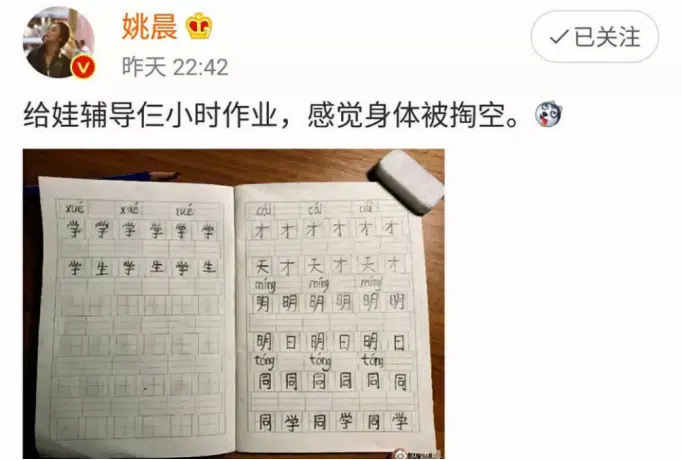 姚晨
已关注
昨天 22:42
给娃辅导仨小时作业，感觉身体被掏空。
xué xué xué
学 学 学 学 学 学
学 生 学 生 学 生
cái cái cái
才 才 才 才 才 才
天 才 天 才 天 才
míng míng míng
明 明 明 明 明 明
明 日 明 日 明 日
tóng tóng tóng
同 同 同 同 同 同
同 学 同 学 同 学